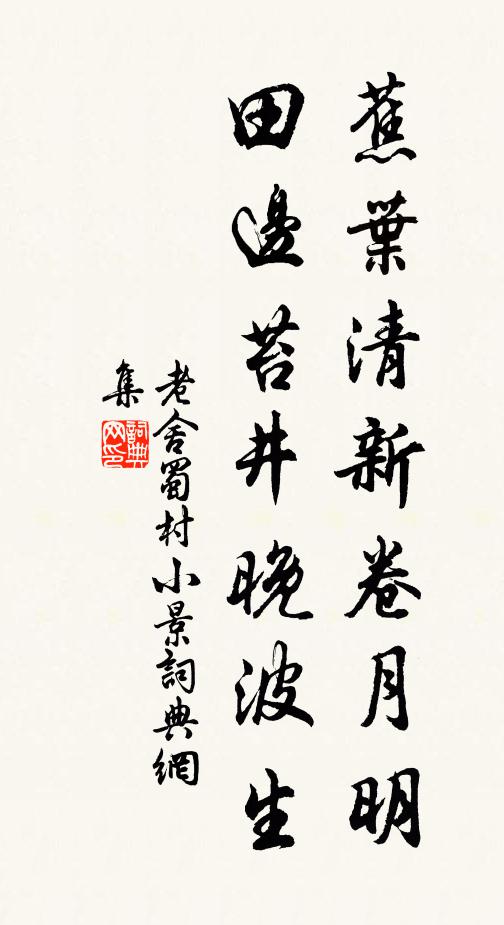 蕉葉清新卷月明
田邊苔井晚波生
老舍蜀村小景詞典網
集
詞典網印